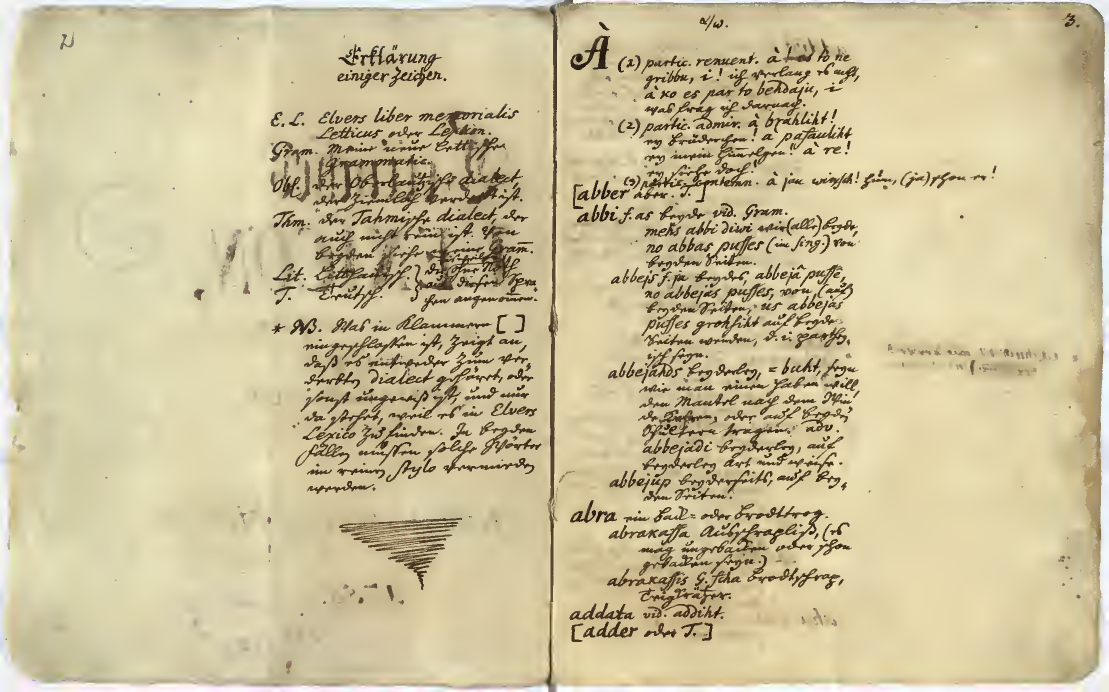 2
Erklärung
einiger Zeichen.
E. L. Elvers liber memorialis
Letticus oder Lexicon.
Gram. Meine neue Lettische
Grammatic.
Obl. der Oberlautzische dialect
der ziemlich verderbt ist.
Thm. der Tahmische dialect, der
auch nicht rein ist. Von
beyden siehe meine Gram̄.
Lit. Litthauisch.
T. Teutsch.
die ohne Noth
aus diesen Spra
chen angenom̄en.
* NB. Was in Klammern [ ]
eingeschlossen ist, zeigt an,
daß es entweder zum ver,
derbten dialect gehöret, oder
sonst ungewiß ist, und nur
da stehet, weil es in Elvers
Lexico zu finden. In beyden
Fällen müssen solche Wörter
im reinen stylo vermieden
werden.
α/ω.
3.
À (1) partic. renuent. à to ne
gribbu, i! ich verlang es nicht,
à ko es par to behdaju, i
was frag ich darnach.
(2) partic. admir. à brahliht!
ey brüderchen! à paſauliht
ey mein himelgen! à re!
ey siehe doch!
(3) partic. contemn. à jau winsch! hum, (ja) schon er!
[abber aber. T.]
abbi f. as beyde vid. Gram.
mehs abbi diwi wir (alle) beyde,
no abbas puſſes (in sing.) von
beyden Seiten.
abbejs f. ja beydes, abbejâ puſſe,
no abbejâs puſſes, von, (auf)
beyden Seiten, us abbejâs
puſſes grohſiht auf beyde
Seiten wenden, d. i. parthey,
isch seyn.
abbejahds beyderley, = buht, seyn
wie man einen haben will
den Mantel nach dem Win
de kehren, oder auf beyden
Schultern tragen. adv.
abbejadi beyderley, auf
beyderley Art und weise.
abbejup beyderseits, auf bey,
den Seiten.
abra ein Back= oder Brodttrog.
abrakaſſa Ausschrapliß, (es
mag ungebacken oder schon
gebacken seyn.)
abrakaſſis G. ſcha Brodtschrap,
Teigkratzer.
addata vid. addiht.
[adder oder T.]